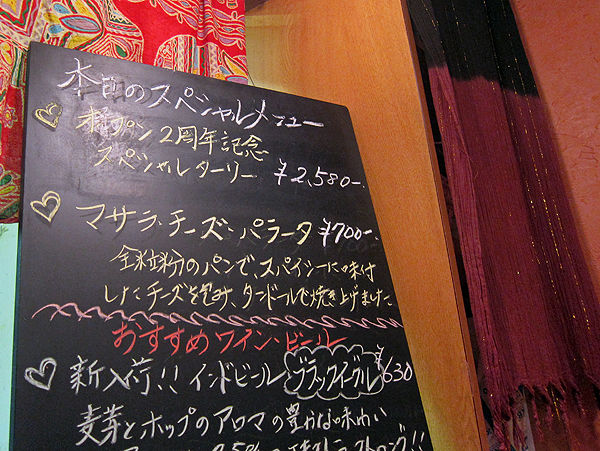 本日のスペシャルメニュー
オープン2周年記念
スペシャルターリー ¥2,580-
マサラ・チーズ・パラータ ¥700-
全粒粉のパンで、スパイシーに味付
したチーズを包み、タンドールで焼き上げました
おすすめワイン・ビール
新入荷!! インドビール ブラックイーグル ¥630
麦芽とホップのアロマの豊かな味わい